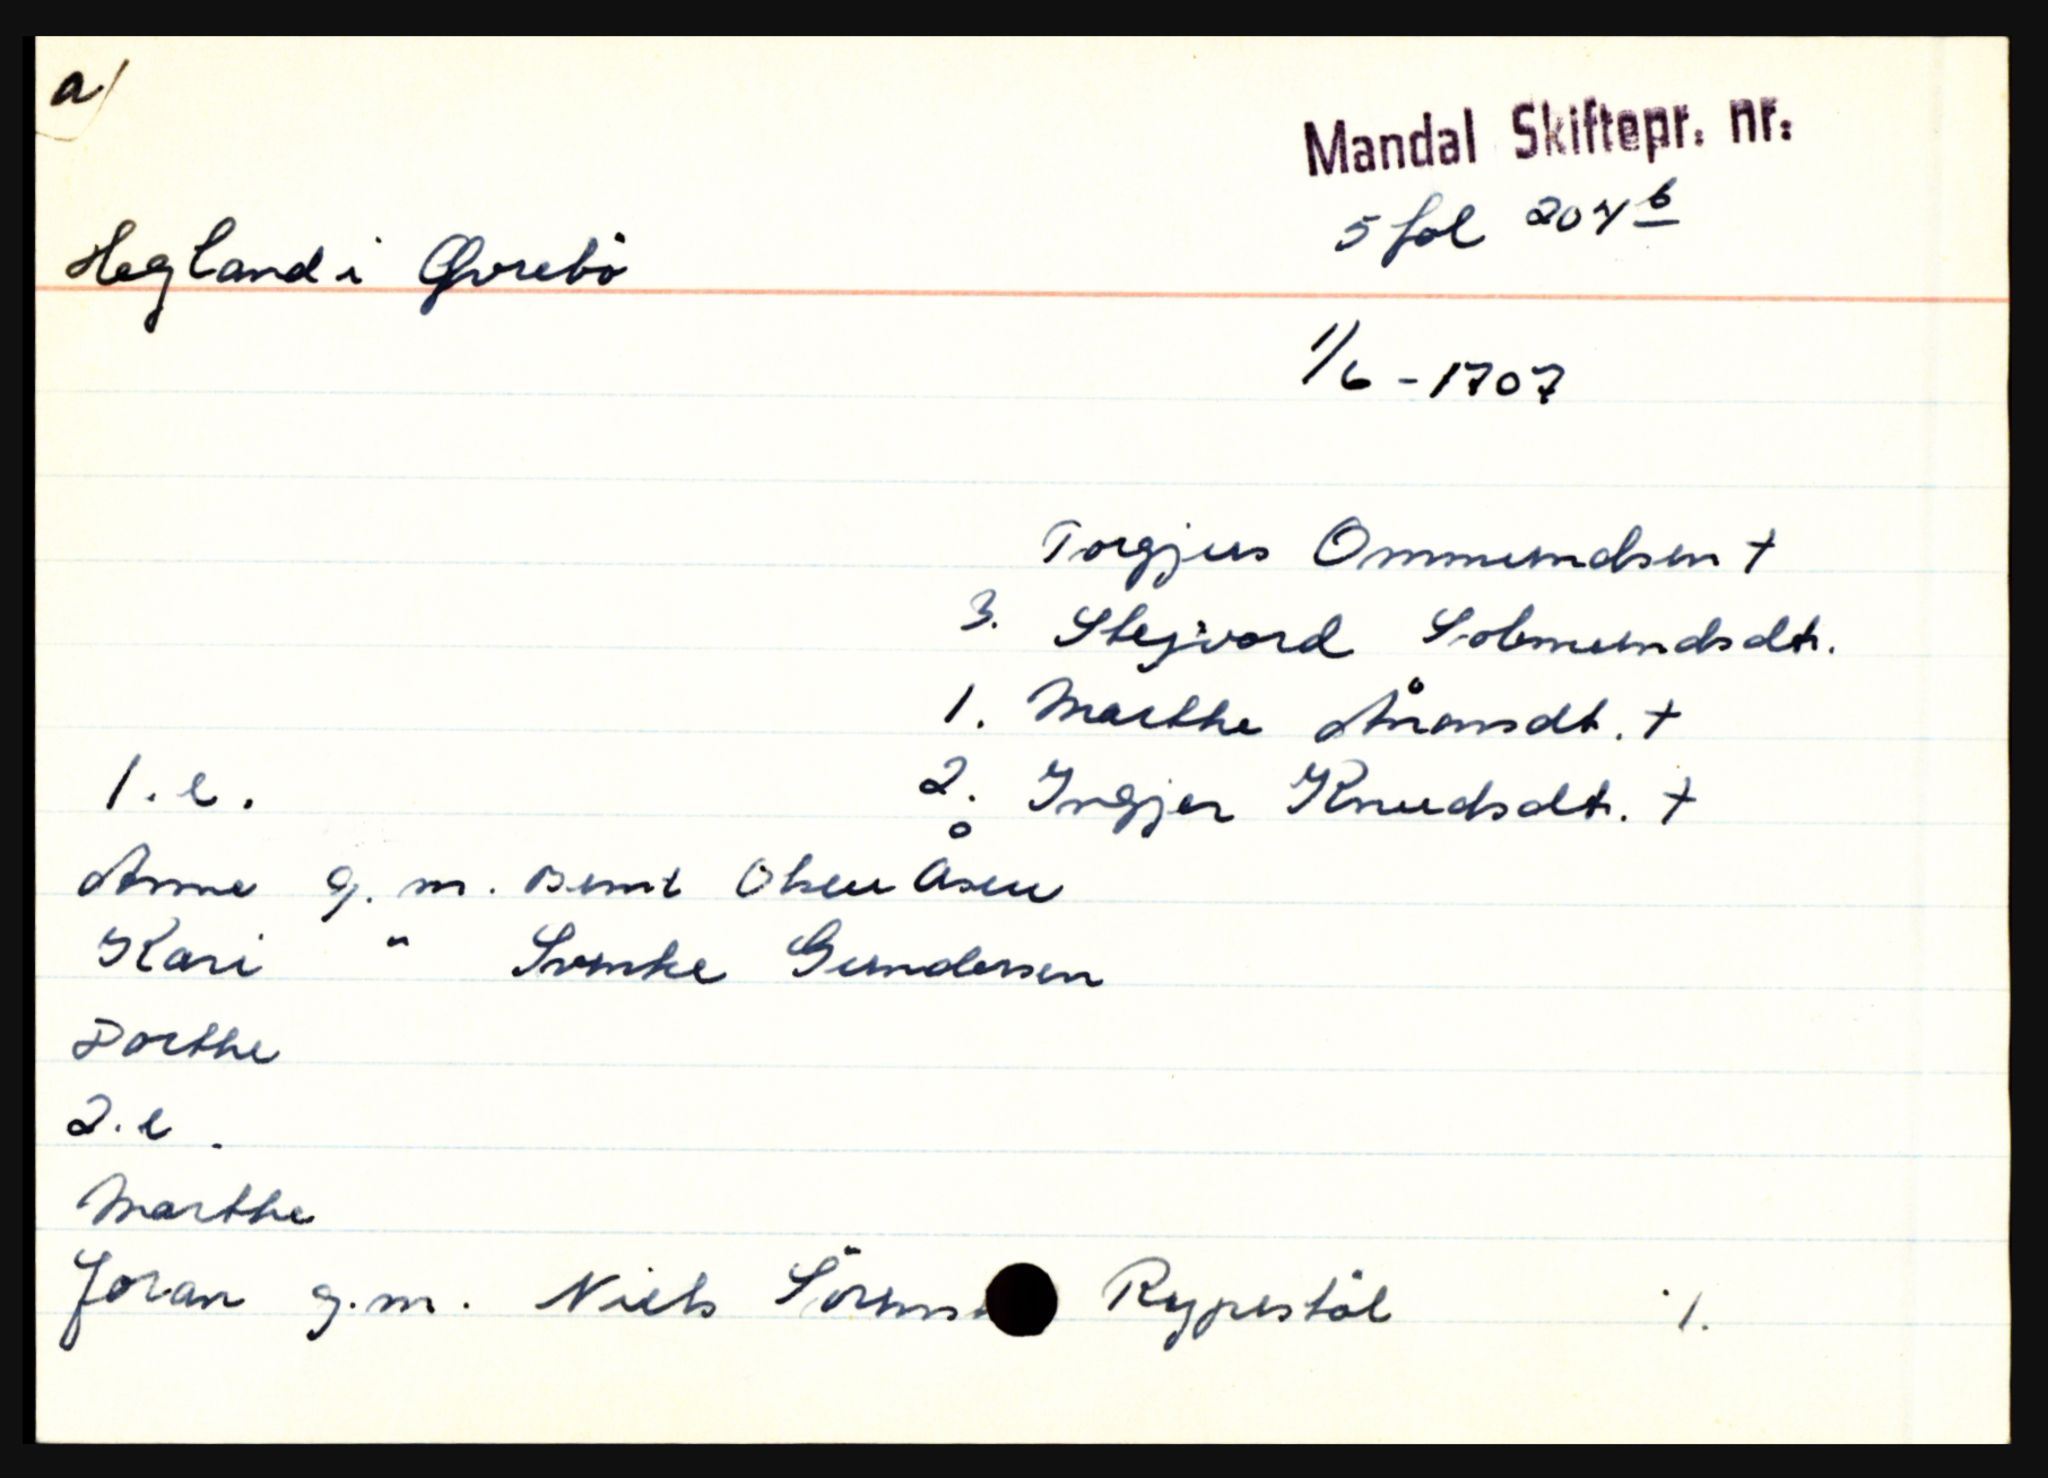 a/
Mandal Skiftepr. nr:
5 fol 204 b
Hegland i Øvrebö
1/6 - 1707
Torgjus Ommundsen †
3. Stejvord Solmundsdtr.
1. Marthe Ånonsdt. †
2. Ingjer Knudsdtr. †
1. e.
Anne g. m. Bernt Olsen Åsen
Kari " Svenke Gundersen
Dorthe
2. e.
Marthe
Joran g. m. Niels Sörens Rypestöl 1.